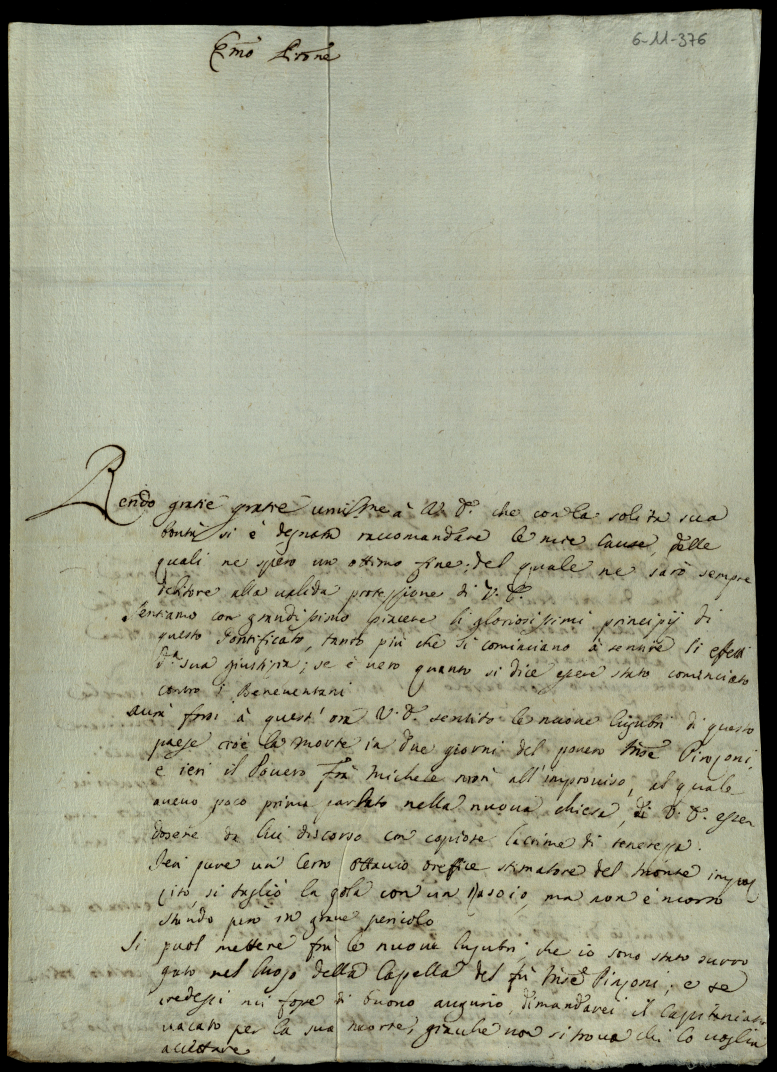 6-11-376
Em̃o Prone
Rendo gratie gratie umilme à V. E. che con la solita sua
bontà si è degnata raccomandare le mie cause, delle
quali ne spero un ottimo fine; del quale ne sarò sempre
debitore alla valida protessione di V. E.
Sentiamo con grandissimo piacere li gloriosissimi principij di
questo Pontificato, tanto più che si cominciano à sentire li effetti
da sua giustizia; se è vero quanto si dice essere stato cominciato
contro i Beneventani
Avrà forsi à quest'ora V. E. sentito le nuove lugubri di questo
paese cioè la morte in due giorni del povero Pinzoni,
e ieri il Povero Frà Michele morì all'improviso, al quale
avevo poco prima parlato nella nuova chiesa, di V. E. essen
dosene da lui discorso con copiose lacrime di tenerezza.
Ieri pure un Certo Ottavio orefice stimatore del Monte
si tagliò la gola con un Rasoio, ma non è morto
stando però in grave pericolo
Si puol mettere frà le nuove lugubri, che io sono stato surro
gato nel luogo della Capella del fù Pinzoni; e se
credessi mi fosse di buono augurio, dimandarei il Capitaniato
vacato per la sua morte, giache non si trova chi lo voglia
accettare